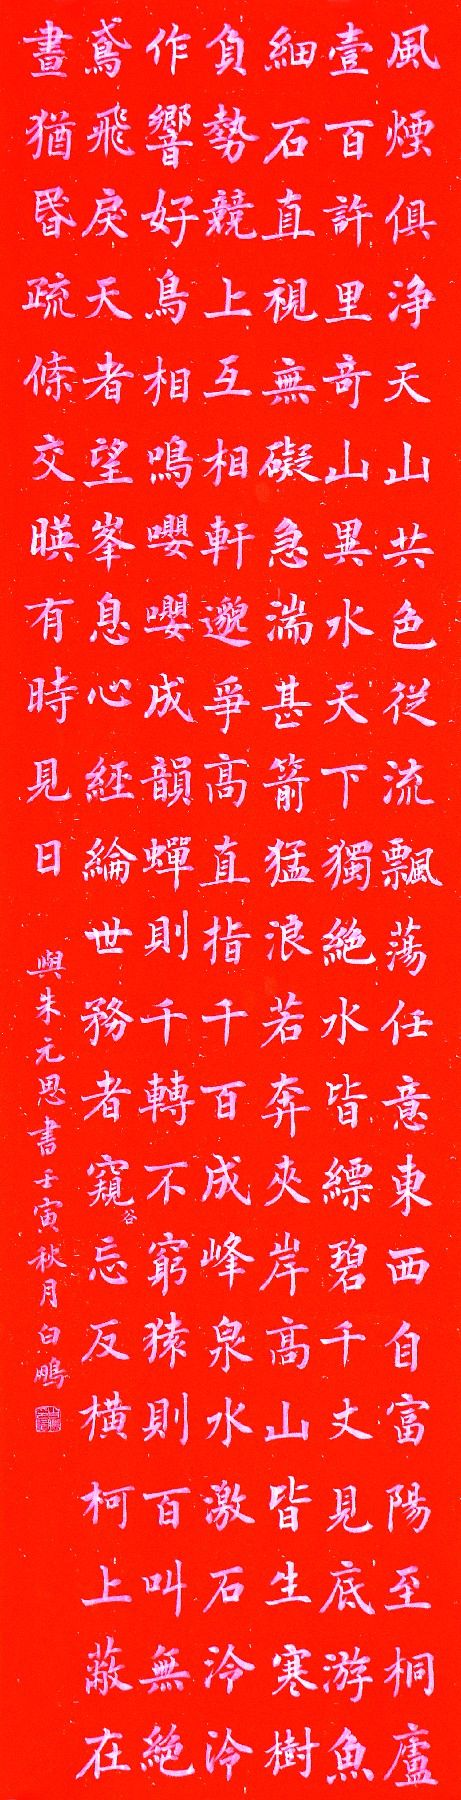 風煙俱浄天山共色從流飄蕩任意東西自富陽至桐廬
壹百許里奇山異水天下獨絶水皆縹碧千丈見底游魚
細石直視無礙急湍甚箭猛浪若奔夾岸高山皆生寒樹
負勢競上互相軒邈爭高直指千百成峰泉水激石泠泠
作響好鳥相鳴嚶嚶成韻蟬則千轉不窮猿則百叫無絶
鳶飛戾天者望峯息心經綸世務者窺谷忘反橫柯上蔽在
晝猶昏疏條交暎有時見日
與朱元思書壬寅秋月白鵬